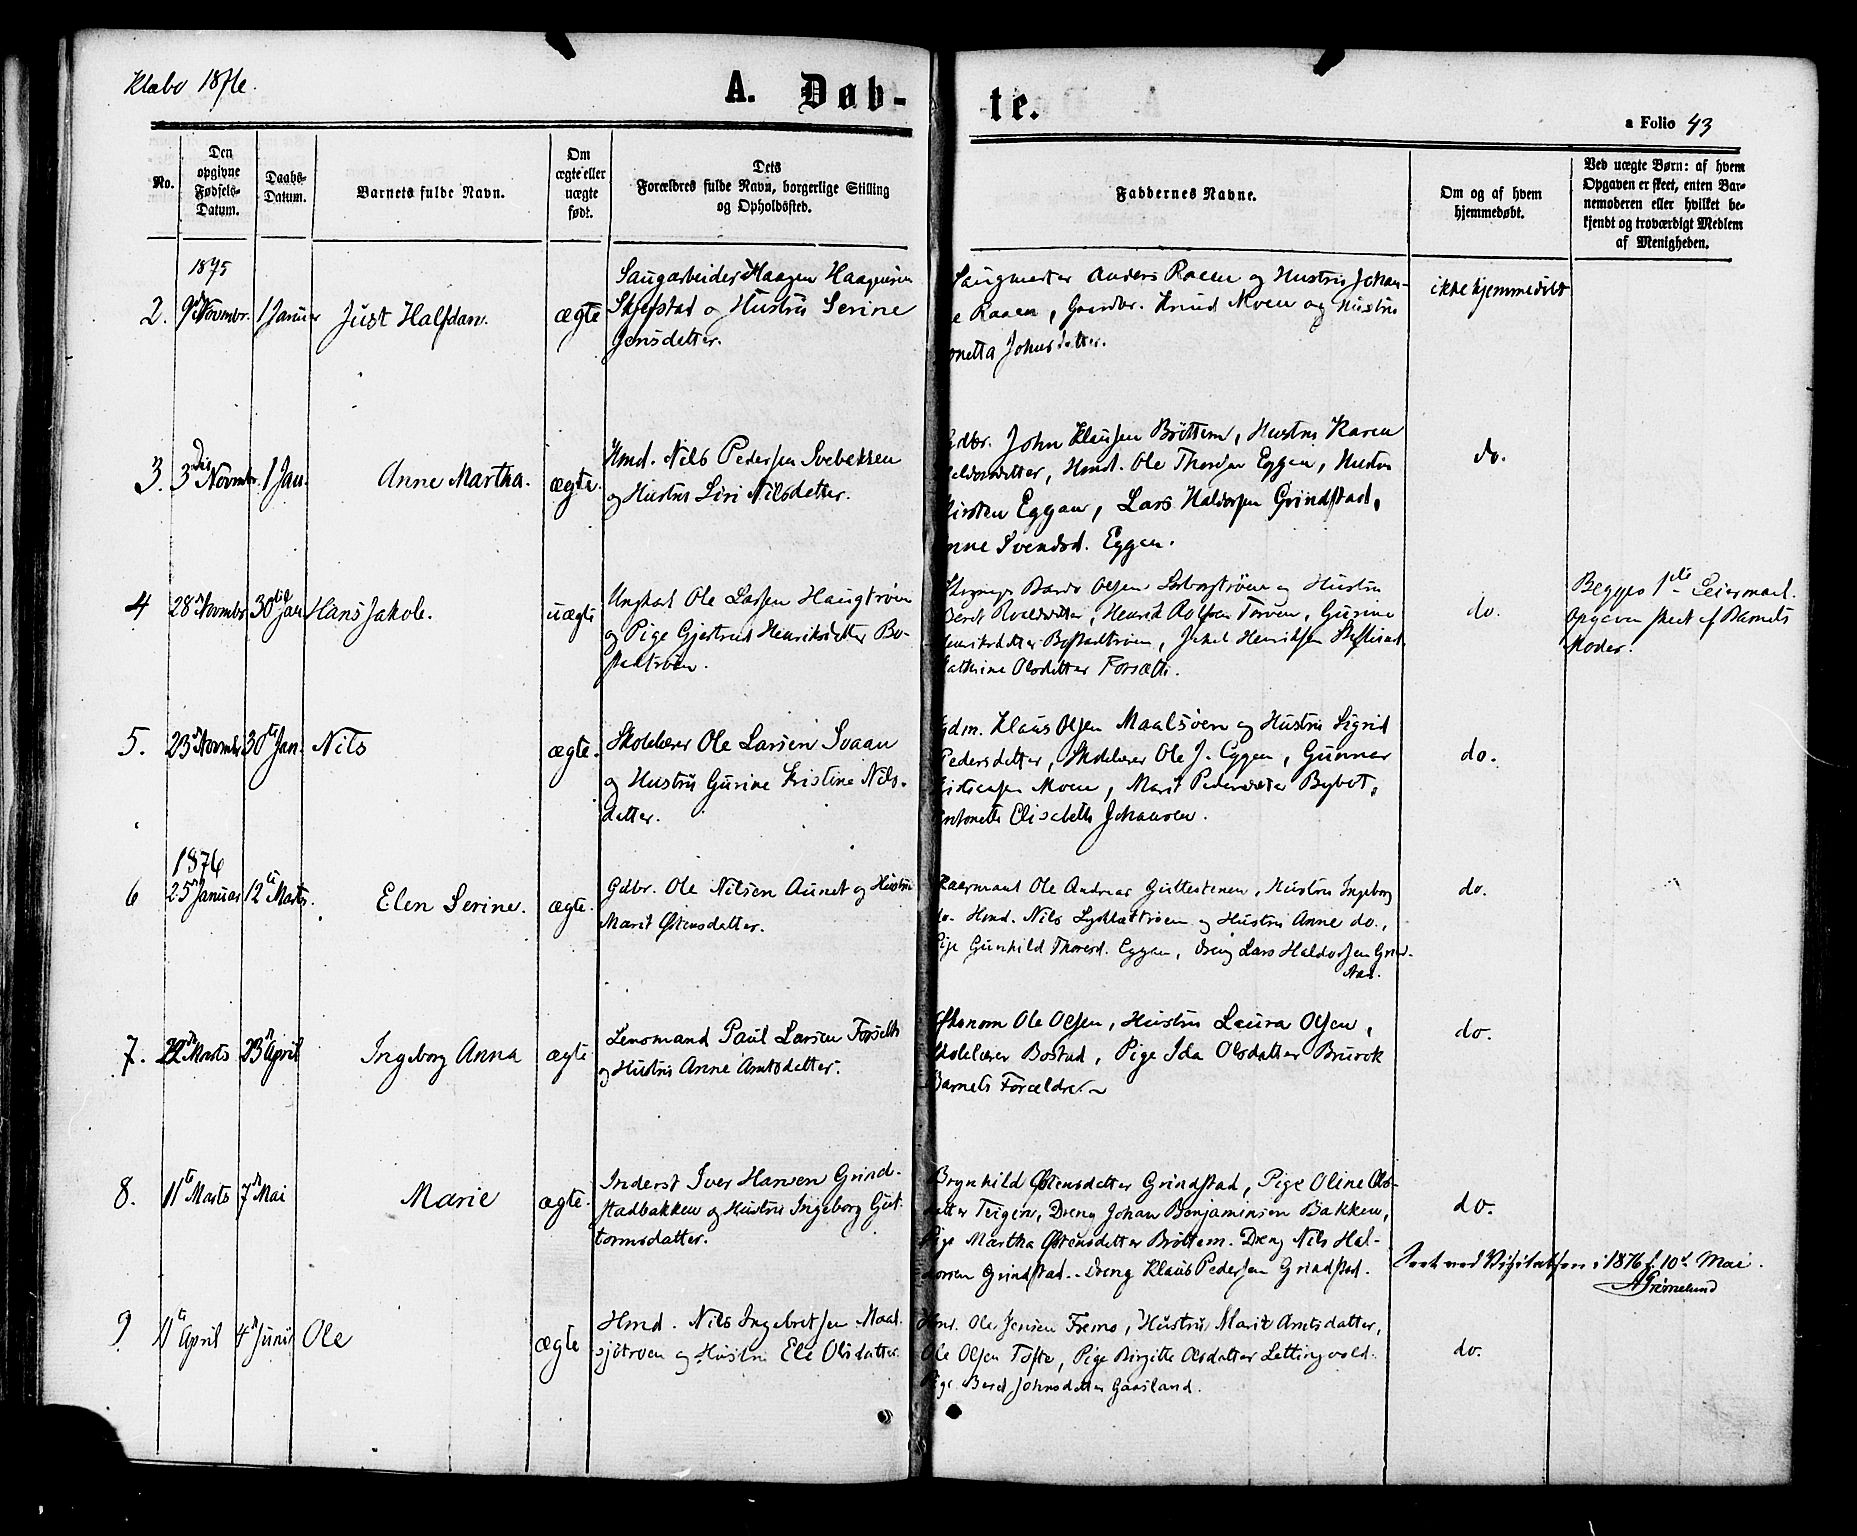 Klæbo 1876.
A. Døb-
te.
a Folio 43
No.
Den
opgivne
Fødsels-
Datum.
Daabs-
Datum.
Barnets fulde Navn.
Om
ægte eller
uægte
født.
Dets
Forældres fulde Navn, borgerlige Stilling
og Opholdssted.
Faddernes Navne.
Om og af hvem
hjemmedøbt.
Ved uægte Børn: af hvem
Opgaven er skeet, enten Bar-
nemoderen eller hvilket be-
kjendt og troværdigt Medlem
af Menigheden.
1875
2. 9de Novmbr. 1 Januar Just Halfdan. ægte
Saugarbeider Haagen Haagensen
Skjefstad og Hustru Serine
Jensdetter.
Saugmester Anders Raaen og Hustru Johan-
e Raaen, Gaardbr. Knud Moen og Hustru
onetta Johnsdetter.
ikke hjemmedøbt
3. 3die Novmbr. 1 Jan. Anne Martha. ægte.
Hmd. Nils Pedersen Svebakken
og Hustru Siri Nilsdetter.
Gdbr. John Klausen Brøttem, Hustru Karen
Haldorsdetter, Hmd. Ole Thorsen Eggen, Hustru
Kirsten Eggen, Lars Haldorsen Grindstad,
Anne Svendsd. Eggen.
do.
4 28 Novmbr 30 Jan Hans Jakob. uægte
Ungkarl Ole Larsen Haugtrøen
og Pige Gjertrud Henriksdetter Bo-
stadtrøen.
Olsen og Hustru
Berit Henrik Rolfsen Gurine
Henriksdetter Bostadtrøen, Jakob Henriksen
Kathrine Olsdetter Forsæth.
do.
Begges 1ste Leiermaal.
Opgaven skeet af Barnets
Moder.
5. 23 Novmbr 30te Jan. Nils ægte.
Skolelærer Ole Larsen Svaan
og Hustru Gurine Kristine Nils-
datter.
Gdm. Klaus Olsen Maalsøen og Hustru Sigrid
Pedersdetter, Skolelærer Ole J. Eggen, Gunnar
Moen, Marit Pedersdetter Bybot,
Antonette Elisabeth Johansen.
do.
1876
6 25 Januar 12te Marts. Elen Serine. ægte.
Gdbr. Ole Nilsen Aunet og Hustru
Marit Østensdatter.
Ole Andreas Hustru Ingeborg
do. Hmd. Nils og Hustru Anne do.,
Pige Gunhild Thoresd. Eggen, Dreng Lars Haldorsen Grind-
stad.
do.
7. 22 Marts 23 April Ingeborg Anna ægte
Lensmand Paul Larsen Forseth
og Hustru Anne Arntsdatter.
Økonom Ole Olsen, Hustru Laura Olsen,
Skolelærer Bostad, Pige Ida Olsdatter Bruvok
Barnets Forældre.
do.
8. 11te Marts 7de Mai Marie ægte.
Inderst Iver Hansen Grind-
stadbakken og Hustru Ingeborg Gut-
tormsdatter.
Brynhild Østensdetter Grindstad, Pige Oline Ols-
datter Teigen, Dreng Johan Benjaminsen Bakken,
Pige Martha Østensdetter Brøttem. Dreng Nils Hal-
dorsen Grindstad. Dreng Klaus Pedersen Grindstad.
do.
Seet ved Visitatsen i 1876 d. 10de Mai.
AGrimelund
9 11te April 4de Juni Ole ægte
Hmd. Nils Ingebretsen Maal-
sjøtrøen og Hustru Eli Olsdatter
Hmd. Ole Jensen Fremo, Hustru Marit Arntsdatter,
Ole Olsen Tofte, Pige Birgitte Olsdatter Lettingvold.
Pige Beret Johnsdetter Gaasland.
do.